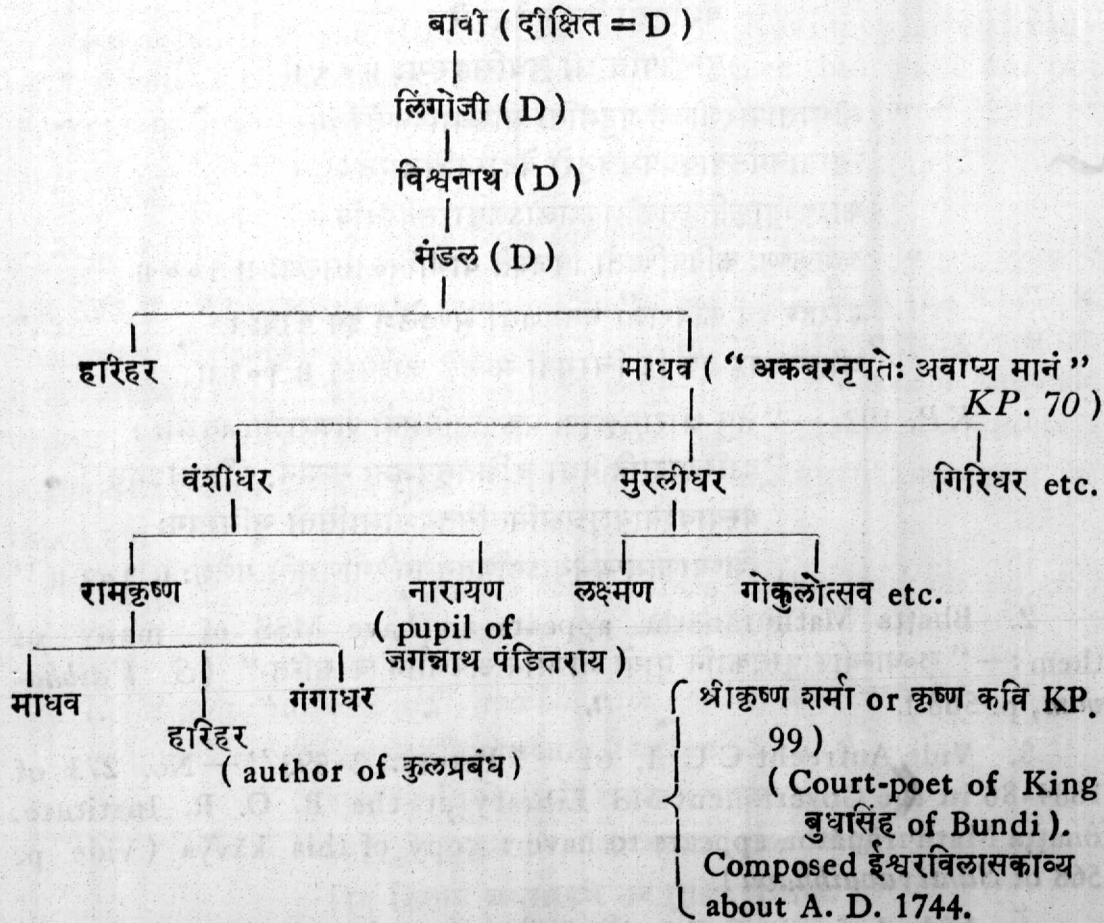 बावी ( दीक्षित = D )
लिंगोजी ( D )
विश्वनाथ ( D )
मंडल ( D )
हरिहर माधव ( “ अकबरनृपतेः अवाप्य मानं ”
KP. 70 )
वंशीधर मुरलीधर गिरिधर etc.
रामकृष्ण नारायण लक्ष्मण गोकुलोत्सव etc.
( pupil of
जगन्नाथ पंडितराय )
माधव गंगाधर
हरिहर
( author of कुलप्रबंध )
श्रीकृष्ण शर्मा or कृष्ण कवि KP.
99 )
( Court-poet of King
बुधसिंह of Bundi ).
Composed ईश्वरविलासकाव्य
about A. D. 1744.